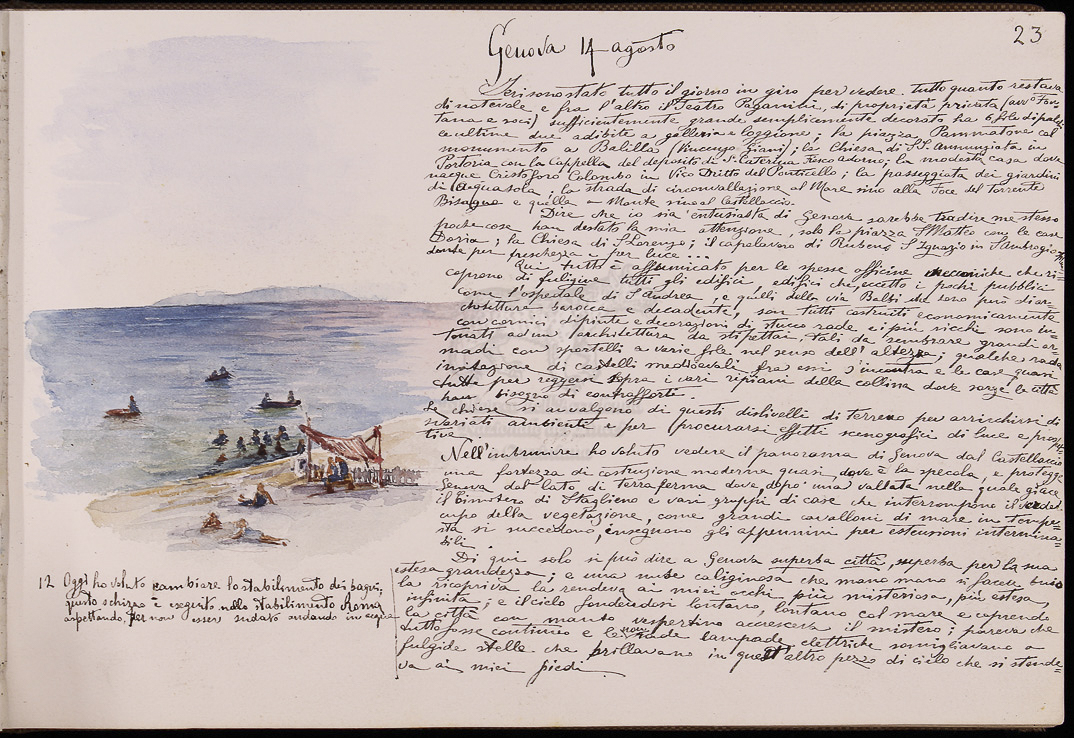 23
Genova 14 agosto
Ieri sono stato tutto il giorno in giro per vedere tutto quanto restava
di notevole e fra l'altro il Teatro Paganini, di proprietà privata (avvº Fon-
tana e soci) sufficientemente grande semplicemente decorato ha 6 file di palchi
le ultime due adibite a galleria e loggione; la piazza Pammatone col
monumento a Balilla (Vincenzo Giani); la Chiesa di S.S. Annunziata in
Portoria con la Cappella del deposito di S. Caterina Fiesco Adorno; la modesta casa dove
nacque Cristoforo Colombo in Vico Dritto del Ponticello; la passeggiata dei giardini
di Acquasola; la strada di circonvallazione al Mare sino alla Foce del torrente
Bisagno e quella a Monte sino al Castellaccio.
Dire che io sia entusiasta di Genova sarebbe tradire me stesso
poche cose han destato la mia attenzione, solo la piazza S. Matteo con le case
Doria; la Chiesa di S. Lorenzo; il capolavoro di Rubens S. Ignazio in S. Ambrogio
per freschezza e per luce ...
Qui tutto è affumicato per le spesse officine meccaniche che ri-
coprono di fuligine tutti gli edifici edifici che, eccetto i pochi pubblici
come l'ospedale di S. Andrea, e quelli della via Balbi che sono però di ar-
chitettura barocca e decadente, son tutti costruiti economicamente
con cornici dipinte e decorazioni di stucco rade e i più ricchi sono in-
tonati ad un'architettura da stipettai, tali da sembrare grandi ar-
madi con sportelli a varie file nel senso dell'altezza; qualche rada
imitazione di castelli medioevali fra essi s'incontra e le case quasi
tutte per reggersi sopra i vari ripiani della collina dove sorge la città
han bisogno di contrafforte.
Le chiese si avvalgono di questi dislivelli di terreno per arricchirsi di
svariati ambienti e per procurarsi effetti scenografici di luce e prospet-
tive
Nell'imbrunire ho voluto vedere il panorama di Genova dal Castellaccio
una fortezza di costruzione moderna quasi dove è la specola, e protegge
Genova dal lato di terraferma dove dopo una vallata nella quale giace
il Cimitero di Staglieno e vari gruppi di case che interrompono il verde
cupo della vegetazione, come grandi cavalloni di mare in tempe-
sta si succedono, inseguono gli appennini per estensioni intermina-
bili.
Di qui solo si può dire a Genova superba città, superba per la sua
estesa grandezza; e una nube caliginosa che mano mano si facea buio
la ricopriva la rendeva ai miei occhi più misteriosa, più estesa,
infinita; e il cielo fondendosi lontano, lontano col mare e coprendo
la città con manto vespertino accresceva il mistero; pareva che
tutto fosse continuo e le non rade lampade elettriche somigliavano a
fulgide stelle che brillavano in quest'altro pezzo di cielo che si stende-
va ai miei piedi.
12 Oggi ho voluto cambiare lo stabilimento dei bagni;
questo schizzo è eseguito nello stabilimento Roma
aspettando, per non esser sudato andando in acqua